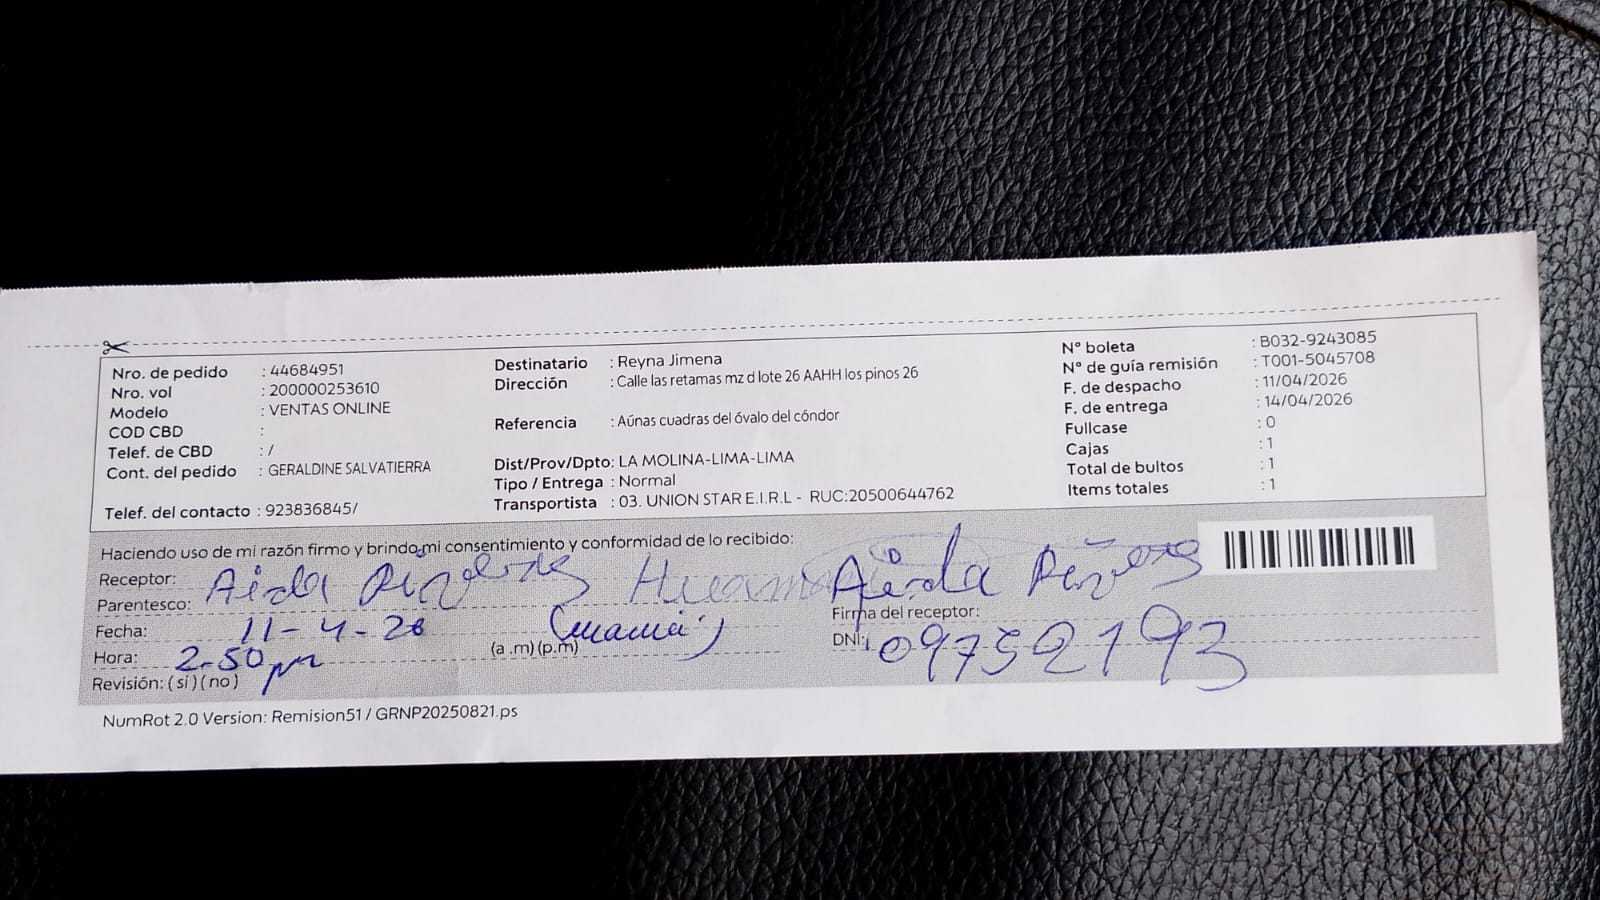 Nro. de pedido : 44684951
Nro. vol : 200000253610
Modelo : VENTAS ONLINE
COD CBD :
Telef. de CBD : /
Cont. del pedido : GERALDINE SALVATIERRA
Telef. del contacto : 923836845/
Destinatario : Reyna Jimena
Dirección : Calle las retamas mz d lote 26 AAHH los pinos 26
Referencia : Aúnas cuadras del óvalo del cóndor
Dist/Prov/Dpto: LA MOLINA-LIMA-LIMA
Tipo / Entrega : Normal
Transportista : 03. UNION STAR E.I.R.L - RUC:20500644762
N° boleta : B032-9243085
N° de guía remisión : T001-5045708
F. de despacho : 11/04/2026
F. de entrega : 14/04/2026
Fullcase : 0
Cajas : 1
Total de bultos : 1
Items totales : 1
Haciendo uso de mi razón firmo y brindo mi consentimiento y conformidad de lo recibido:
Receptor: Aida
Parentesco: (mamá)
Fecha: 11-4-26
Hora: 2-50 pm (a .m) (p.m)
Revisión: ( si ) ( no )
Aida
Firma del receptor:
DNI: 09752193
NumRot 2.0 Version: Remision51 / GRNP20250821.ps